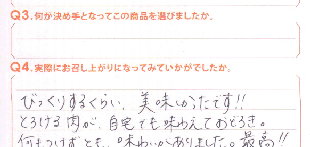 Q3.何が決め手となってこの商品を選びましたか。
Q4.実際にお召し上がりになってみていかがでしたか。
びっくりするくらい、美味しかったです!!
とろける肉が、自宅でも味わえておどろき。
何もつけずとも、味わいがありました。最高!!